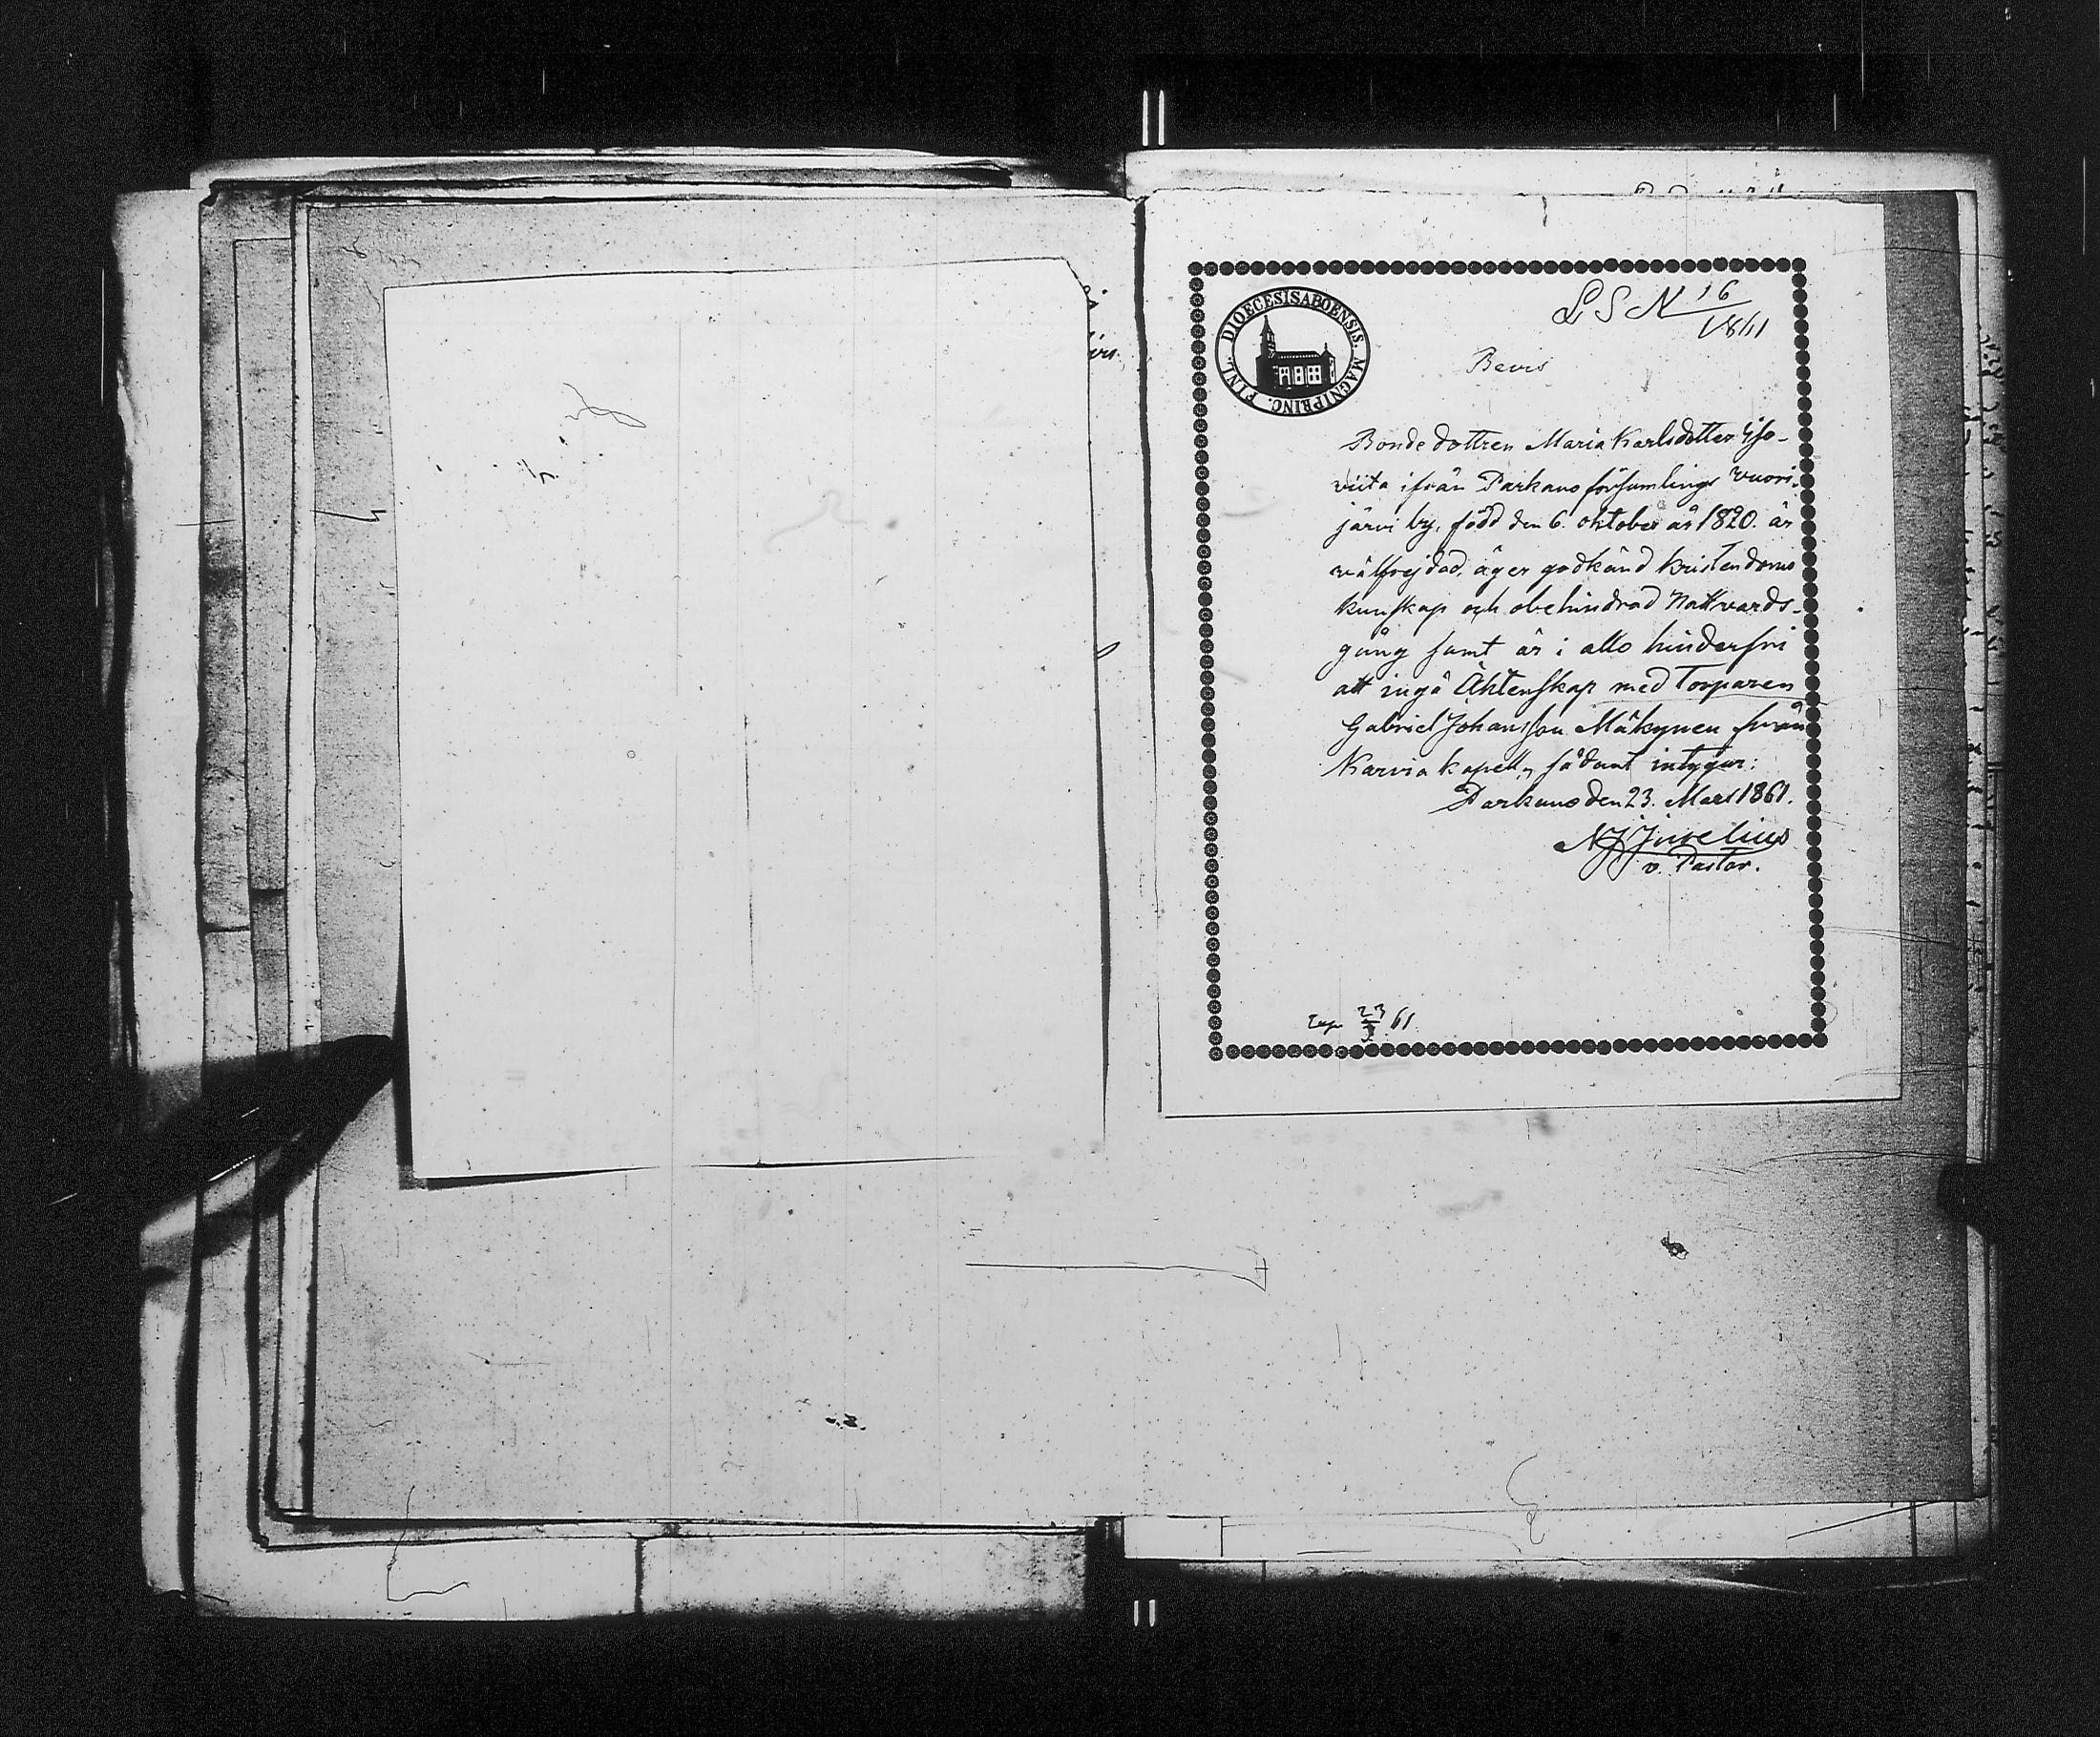 L S N 16/1861
DIOECESIS ABOENSIS. MAGNI PRINC. FINL.
Bevis
Bonde dottren Maria Karlsdotter Yso-
viita ifrån Parkano församlings Vuori-
järvi by, född den 6. oktober år 1820. är
wälfrejdad, äger godkänd kristendoms
kunskap och obehindrad Nattvards-
gång samt är i allo hinderfri
att ingå Äktenskap med Torparen
Gabriel Johansson Mäkynen från
Karvia kapell, sådant intygar:
Parkano den 23. Mars 1861.
N J Juvelius
v. Pastor.
23/3 61